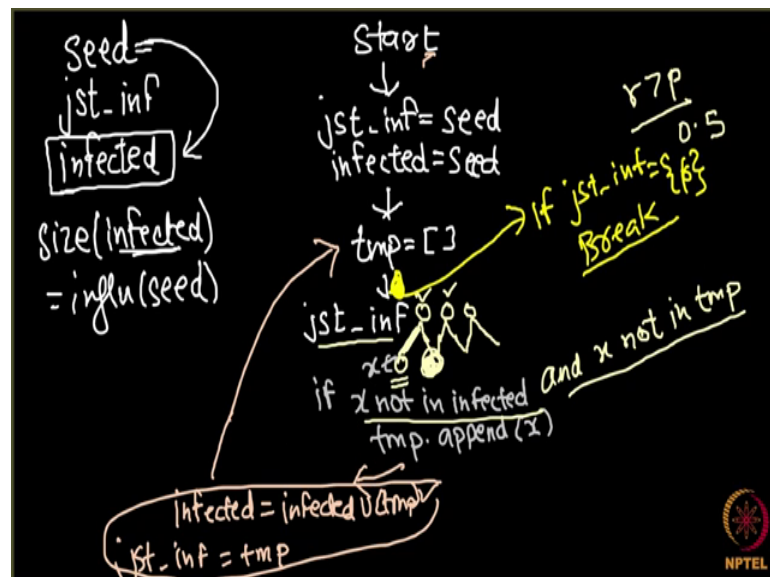 seed=
jst_inf
infected
size(infected)
=influ(seed)
Start
jst_inf=seed
infected=seed
tmp=[]
jst_inf
x
if x not in infected and x not in tmp
tmp.append(x)
infected=infected U(tmp)
jst_inf=tmp
r>p
0.5
If jst_inf={ϕ}
Break
NPTEL